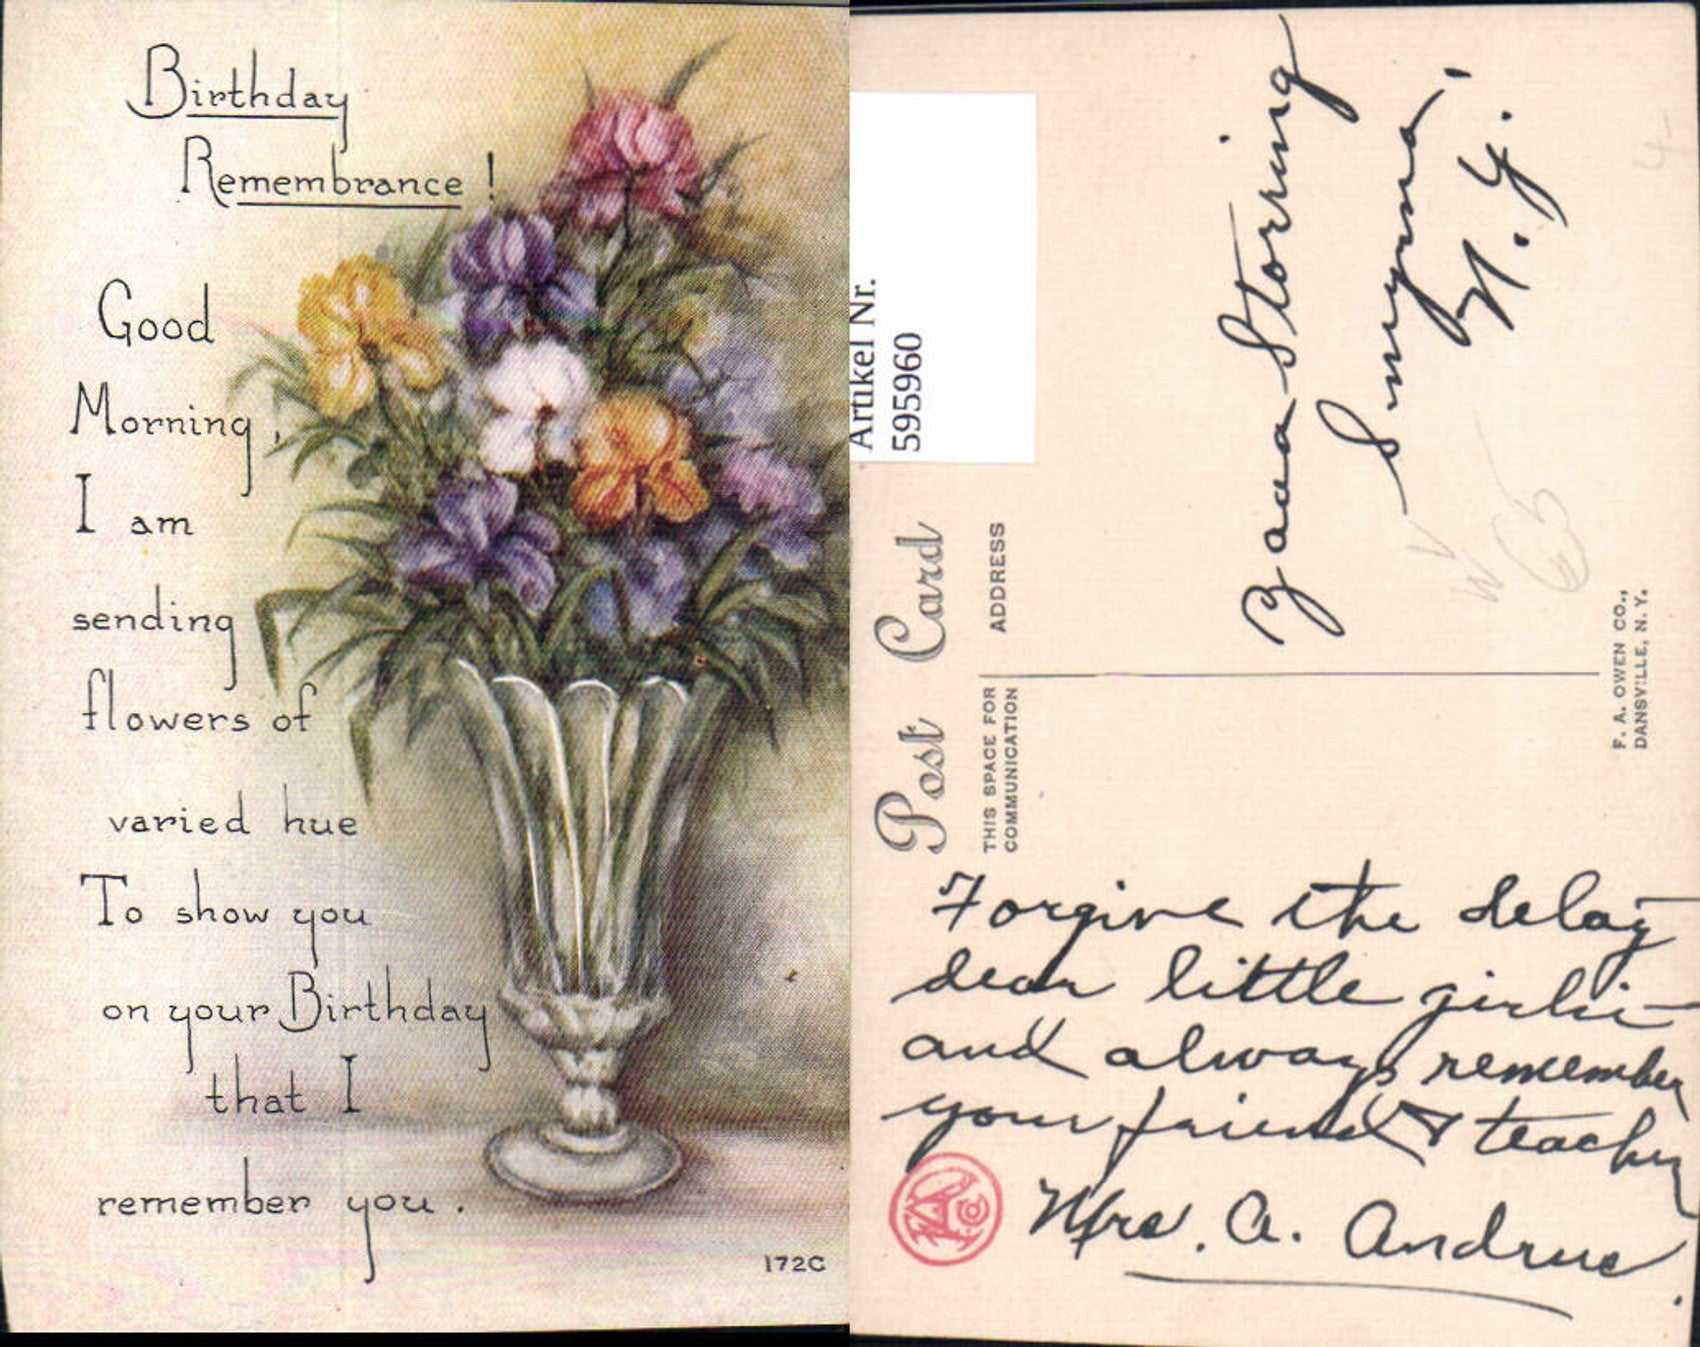 Birthday
Remembrance!
Good
Morning,
I am
sending
flowers of
varied hue
To show you
on your Birthday
that I
remember you.
172C
Artikel Nr.
595960
Post Card
ADDRESS
THIS SPACE FOR
COMMUNICATION
Storring
Smyrna
N.Y.
F. A. OWEN CO.,
DANSVILLE, N. Y.
Forgive the delay
dear little girlie
and always remember
your friend & teacher
Mrs. A. Andrus